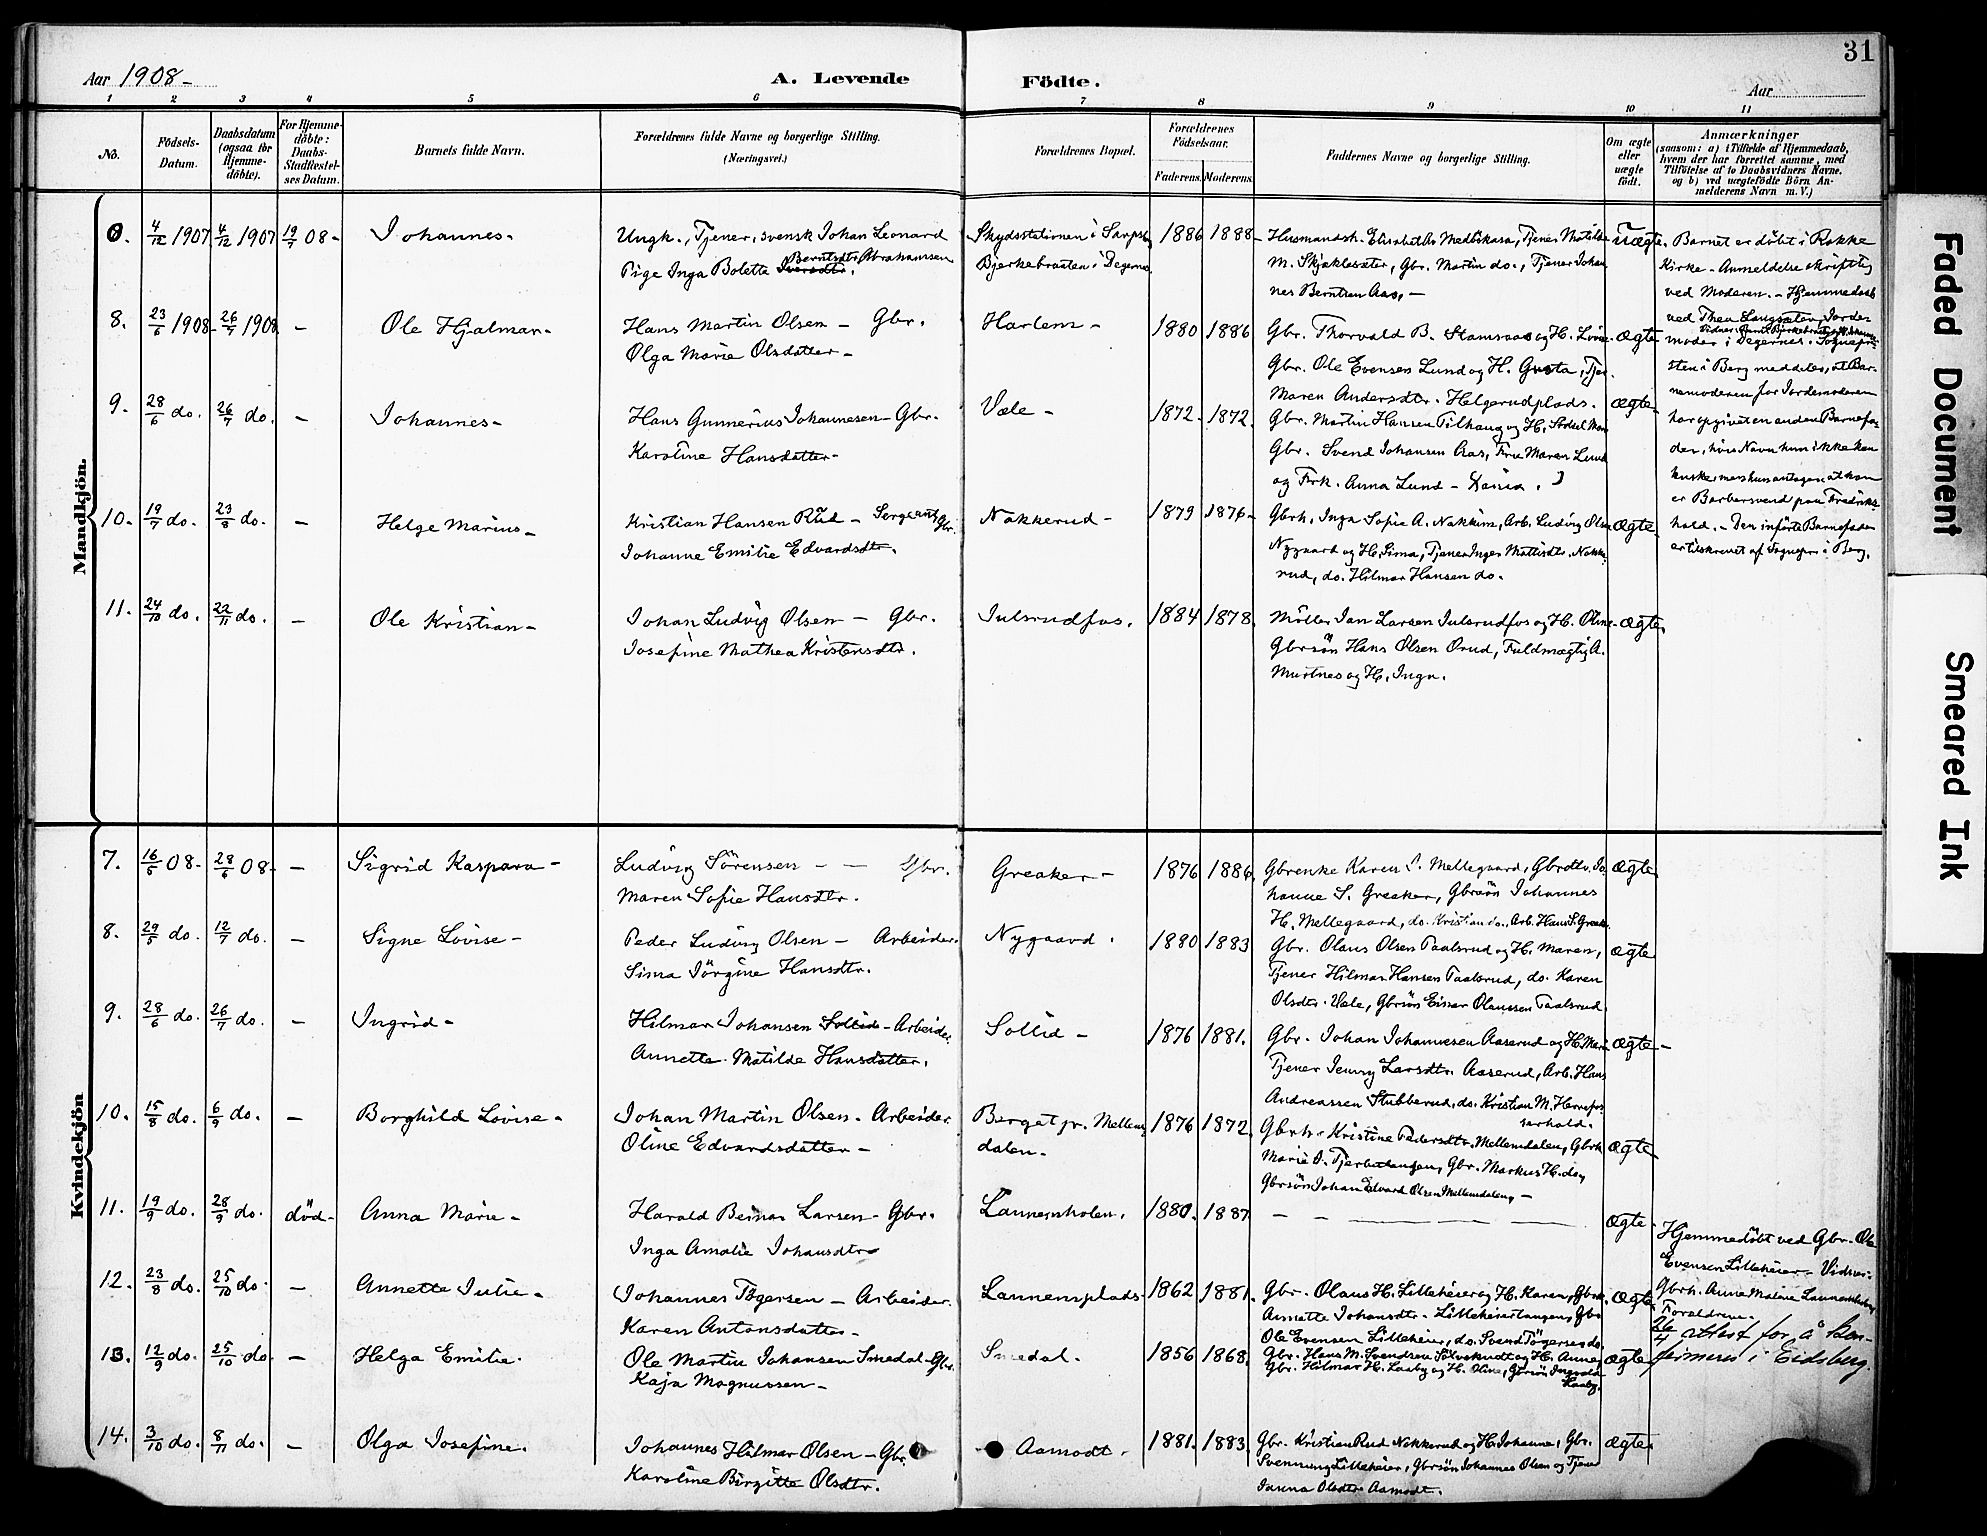 31
Aar 1908-
A. Levende Födte.
Aar
1 2 3 4 5 6 7 8 9 10 11
No.
Födsels-Datum.
Daabsdatum (ogsaa for Hjemme-döbte).
For Hjemme-döbte: Daabs-Stadfæstel-ses Datum.
Barnets fulde Navn.
Forældrenes fulde Navne og borgerlige Stilling. (Næringsvei.)
Forældrenes Bopæl.
Forældrenes Födselsaar.
Faderens. Moderens.
Faddernes Navne og borgerlige Stilling.
Om ægte eller uægte födt.
Anmærkninger
(saasom: a) i Tilfælde af Hjemmedaab,
hvem der har forrettet samme, med
Tilföielse af to Daabsvidners Navne.
og b) ved uægtefödte Börn An-
melderens Navn m. V.)
Mandkjön.
4/12 1907 4/12 1907 19/7 08- Johannes- Ungk., Tjener, svensk Johan Leonard Abrahamsen
Pige Inga Boletta Berntsdtr.
Skydsstationen i Sarpsb
Bjerkebraaten i Degernes
1886 1888- Husmandsk. Elisabeth Medbikasa, Tjener Matilde
M. Skjæklesæter, Gbr. Martin do., Tjener Johan
nes Berntsen Aas, -
Uægte.
Barnet er döbt i Rokke
Kirke - Anmeldelse skriftlig
ved Moderen. - Hjemmedaab
ved Thea Langsæter, Jorde
moder i Degernes. Sognepr-
sten i Berg meddeler, at Bar-
nemoderen for Jordemoderen
har opgivet en anden Barnefa-
der, hvis Navn hun ikke kan
huske men hun antager at han
er Barbersvend paa Fredriks
hald. - Den införte Barnefader
er tilskrevet af Sognepr. i Berg.
8. 23/6 1908- 26/7 1908 - Ole Hjalmar- Hans Martin Olsen - Gbr.
Olga Marie Olsdatter -
Harlem - 1880 1886 Gbr. Thorvald B. Stamsaas og H. Lovise
Gbr. Ole Evensen Lund og H. Gusta, Tjen.
Maren Andersdtr. Helgerudplads.
ægte-
9. 28/6 do. 26/7 do. - Johannes- Hans Gunnerius Johannesen- Gbr.
Karoline Hansdatter-
Væle - 1872- 1872. Gbr. Martin Hansen Tilhaug og H.
Gbr. Svend Johansen Aas, Fru Maren Lund
og Frk. Anna Lund -
ægte-
10. 19/7 do. 23/8 do. - Helge Marius- Kristian Hansen Rud - Sergeant, Gbr.
Johanne Emilie Edvardsdtr.
Nakkerud- 1879 1876- Gbrk. Inga Sofie A. Nakkim, Arb. Ludvig Olsen
Nygaard og H. Sima, Tjener Inger Mattisdtr. Nakke
rud, do. Hilmar Hansen do.
ægte-
11. 24/10 do. 22/11 do. - Ole Kristian- Johan Ludvig Olsen - Gbr.
Josefine Mathea Kristensdtr.
Julsrudfos. 1884 1878. Möller Jan Larsen Julsrudfos og H. Oline-
Gbrsön Hans Olsen Orud, Fuldmægtig A.
Murtnes og H. Inga.
ægte.
Kvindekjön
7. 16/5 08- 28/6 08- - Sigrid Kaspara - Ludvig Sörensen - - Gbr.
Maren Sofie Hansdtr.
Greaker- 1876 1886. Gbrenke Karen S. Mellegaard, Gbrdtr. Jo
hanne S. Greaker, Gbrsön Johannes
H. Mellegaard, do. Kristian do., Arb. Hans S. Greak.
ægte
8. 29/5 do. 12/7 do. - Signe Lovise - Peder Ludvig Olsen - Arbeider.
Sima Jörgine Hansdtr.
Nygaard. 1880 1883 Gbr. Olaus Olsen Taalsrud og H. Maren,
Tjener Hilmar Hansen Taalsrud, do. Karen
Olsdtr. Væle, Gbrsön Einar Olaussen Taalsrud.
ægte
9. 28/6 do. 26/7 do. - Ingrid- Hilmar Johansen Sollid - Arbeider.
Annette Matilde Hansdatter.
Sollid - 1876 1881. Gbr. Johan Johannesen Aaserud og H. Mari
Tjener Jenny Larsdtr. Aaserud, Arb. Hans
Andreassen Stubberud, do. Kristian M. Hernefos
ægte -
10. 15/8 do. 6/9 do. - Borghild Lovise - Johan Martin Olsen - Arbeider.
Oline Edvardsdatter -
Berget pr. Mellem
dalen.
1876 1872. Gbrk. Kristine Pedersdtr. Mellemdalen, Gbrk
Marie A. Tjerbutangen, Gbr. Markus H. do,
Gbrsön Johan Edvard Olsen Mellemdalen, -
ægte
11. 19/9 do. 28/9 do. död- Anna Marie - Harald Bernar Larsen - Gbr.
Inga Amalie Johansdtr.
Lannemholen. 1880. 1887 - - - - ægte.
Hjemmedöbt ved Gbr. Ole
Evensen Lilleheier - Vidner-
Gbrk. Anne Matina Lannemholen,
Forældrene.
12. 23/8 do. 25/10 do. - Annette Julie - Johannes Tögersen - Arbeider.
Karen Antonsdatter -
Lannemplads. 1862 1881. Gbr. Olaus H. Lilleheier og H. Karen, Gbrk.
Annette Johansdtr. Lilleheiertangen, Gbr.
Ole Evensen Lilleheier, do. Svend Tögersen do.
ægte.
26/4 attest for å kon-
firmeres i Eidsberg.
13. 12/9 do. 25/10 do - Helga Emilie. Ole Martin Johansen Smedal- Gbr.
Kaja Magnussen -
Smedal. 1856 1868. Gbr. Hans M. Svendsen Sölvskudt og H. Anne,
Gbr. Hilmar H. Kaaby og H. Oline, Gbrsön Ingvald
Kaaby.
ægte
14. 3/10 do. 8/11 do. - Olga Josefine. Johannes Hilmar Olsen - Gbr.
Karoline Birgitte Olsdtr.
Aamodt. 1881. 1883. Gbr. Kristian Rud Nakkerud og H. Johanne, Gbr.
Svenning Lilleheier, Gbrsön Johannes Olsen og Tjener
Janna Olsdtr. Aamodt.
ægte.
Faded Document
Smeared Ink